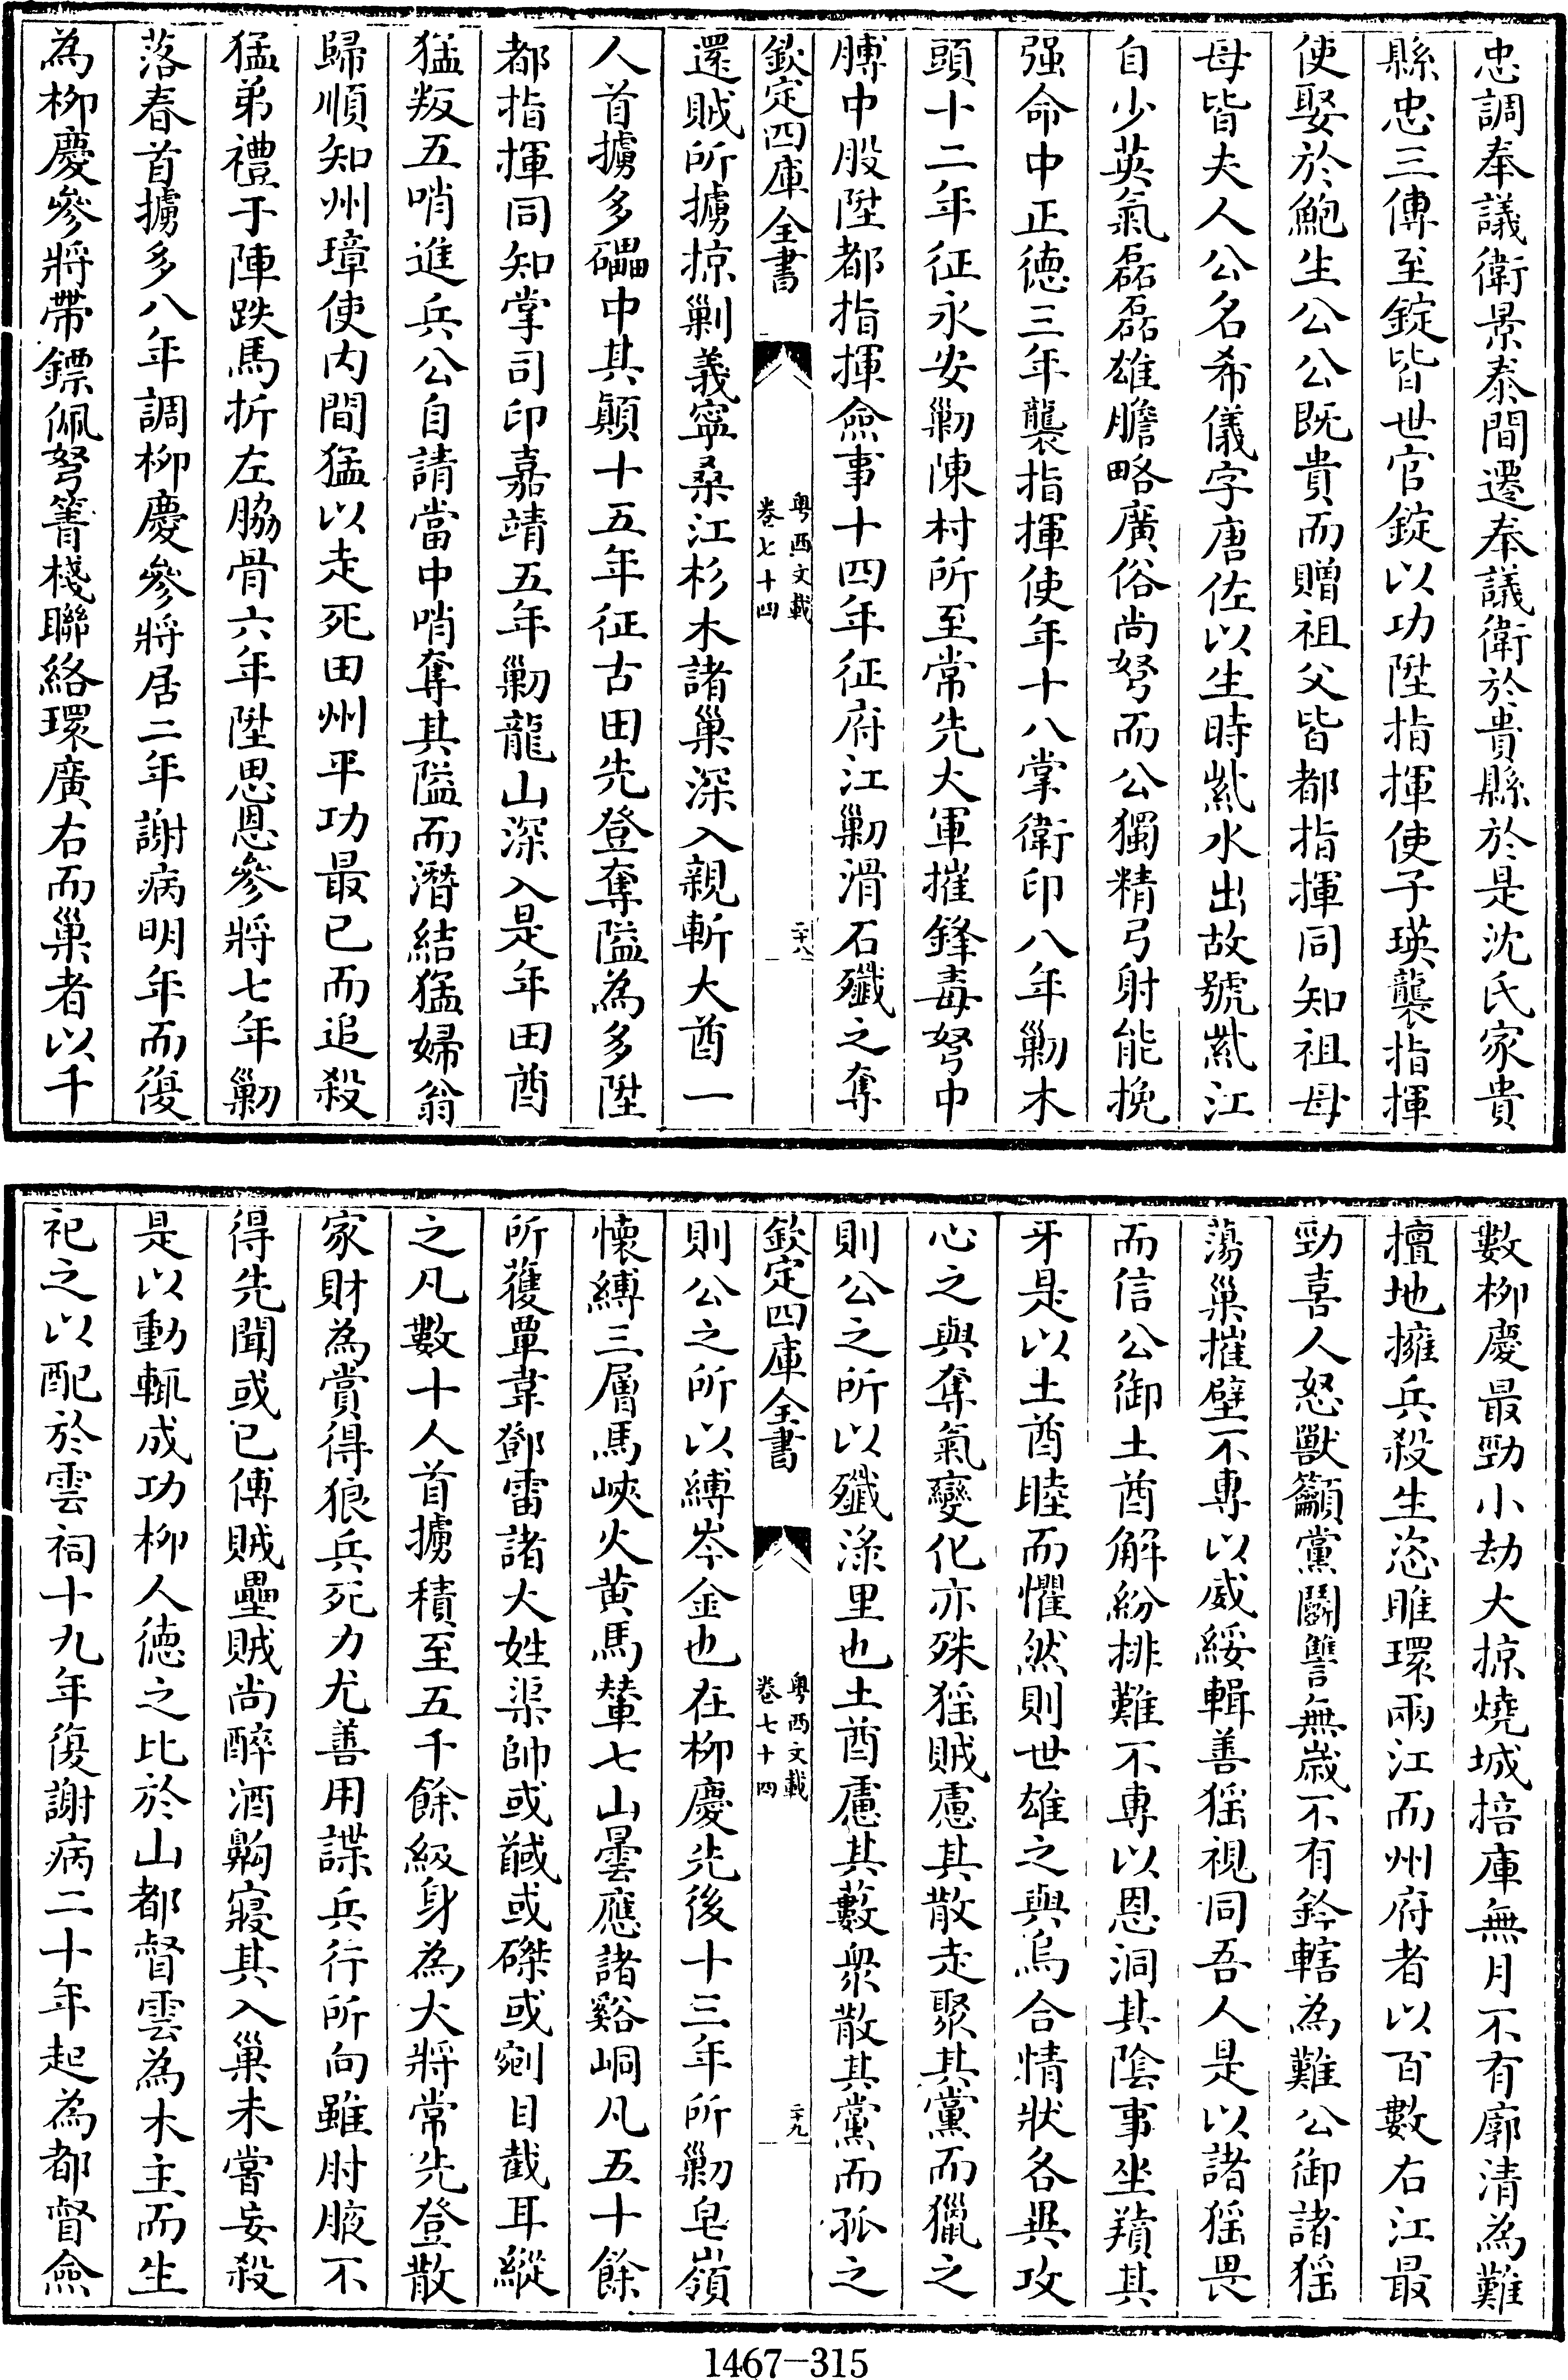 忠調奉議衛景泰間遷奉議衛於貴縣於是沈氏家貴
縣忠三傳至錠皆世官錠以功陞指揮使子瑛襲指揮
使娶於鮑生公公既貴而贈祖父皆都指揮同知祖母
母皆夫人公名希儀字唐佐以生時紫水出故號紫江
自少英氣磊磊雄膽略廣俗尚弩而公獨精弓射能挽
强命中正德三年襲指揮使年十八掌衛印八年勦木
頭十二年征永安勦陳村所至常先大軍摧鋒毒弩中
膊中股陞都指揮僉事十四年征府江勦滑石殲之奪
欽定四庫全書
粤西文載
卷七十四
二十八
還賊所擄掠剿義寧桑江杉木諸巢深入親斬大酋一
人首擄多礧中其顛十五年征古田先登奪隘為多陞
都指揮同知掌司印嘉靖五年勦龍山深入是年田酋
猛叛五哨進兵公自請當中哨奪其隘而潛結猛婦翁
歸順知州璋使内間猛以走死田州平功最已而追殺
猛弟禮于陣跌馬折左脇骨六年陞思恩參將七年勦
落春首擄多八年調柳慶參將居二年謝病明年而復
為柳慶參將帶鏢佩弩箐棧聯絡環廣右而巢者以千
數柳慶最勁小劫大掠燒城掊庫無月不有廓清為難
擅地擁兵殺生恣睢環兩江而州府者以百數右江最
勁喜人怒獸籲黨鬭讐無歲不有鈐轄為難公御諸猺
蕩巢摧壁不專以威綏輯善猺視同吾人是以諸猺畏
而信公御土酋解紛排難不專以恩洞其陰事坐積其
牙是以土酋睦而懼然則世雄之與烏合情狀各異攻
心之與奪氣變化亦殊猺賊慮其散走聚其黨而獵之
則公之所以殲淥里也土酋慮其藪衆散其黨而孤之
欽定四庫全書
粤西文載
卷七十四
二十九
則公之所以縛岑金也在柳慶先後十三年所勦皂嶺
懷縛三層馬峽火黄馬輦七山曇應諸谿峒凡五十餘
所獲覃韋鄧雷諸大姓渠帥或馘或磔或剜目截耳縱
之凡數十人首擄積至五千餘級身為大將常先登散
家財為賞得狼兵死力尤善用諜兵行所向雖肘腋不
得先聞或已傅賊壘賊尚醉酒齁寢其入巢未嘗妄殺
是以動輒成功柳人德之比於山都督雲為木主而生
祀之以配於雲祠十九年復謝病二十年起為都督僉
1467-315